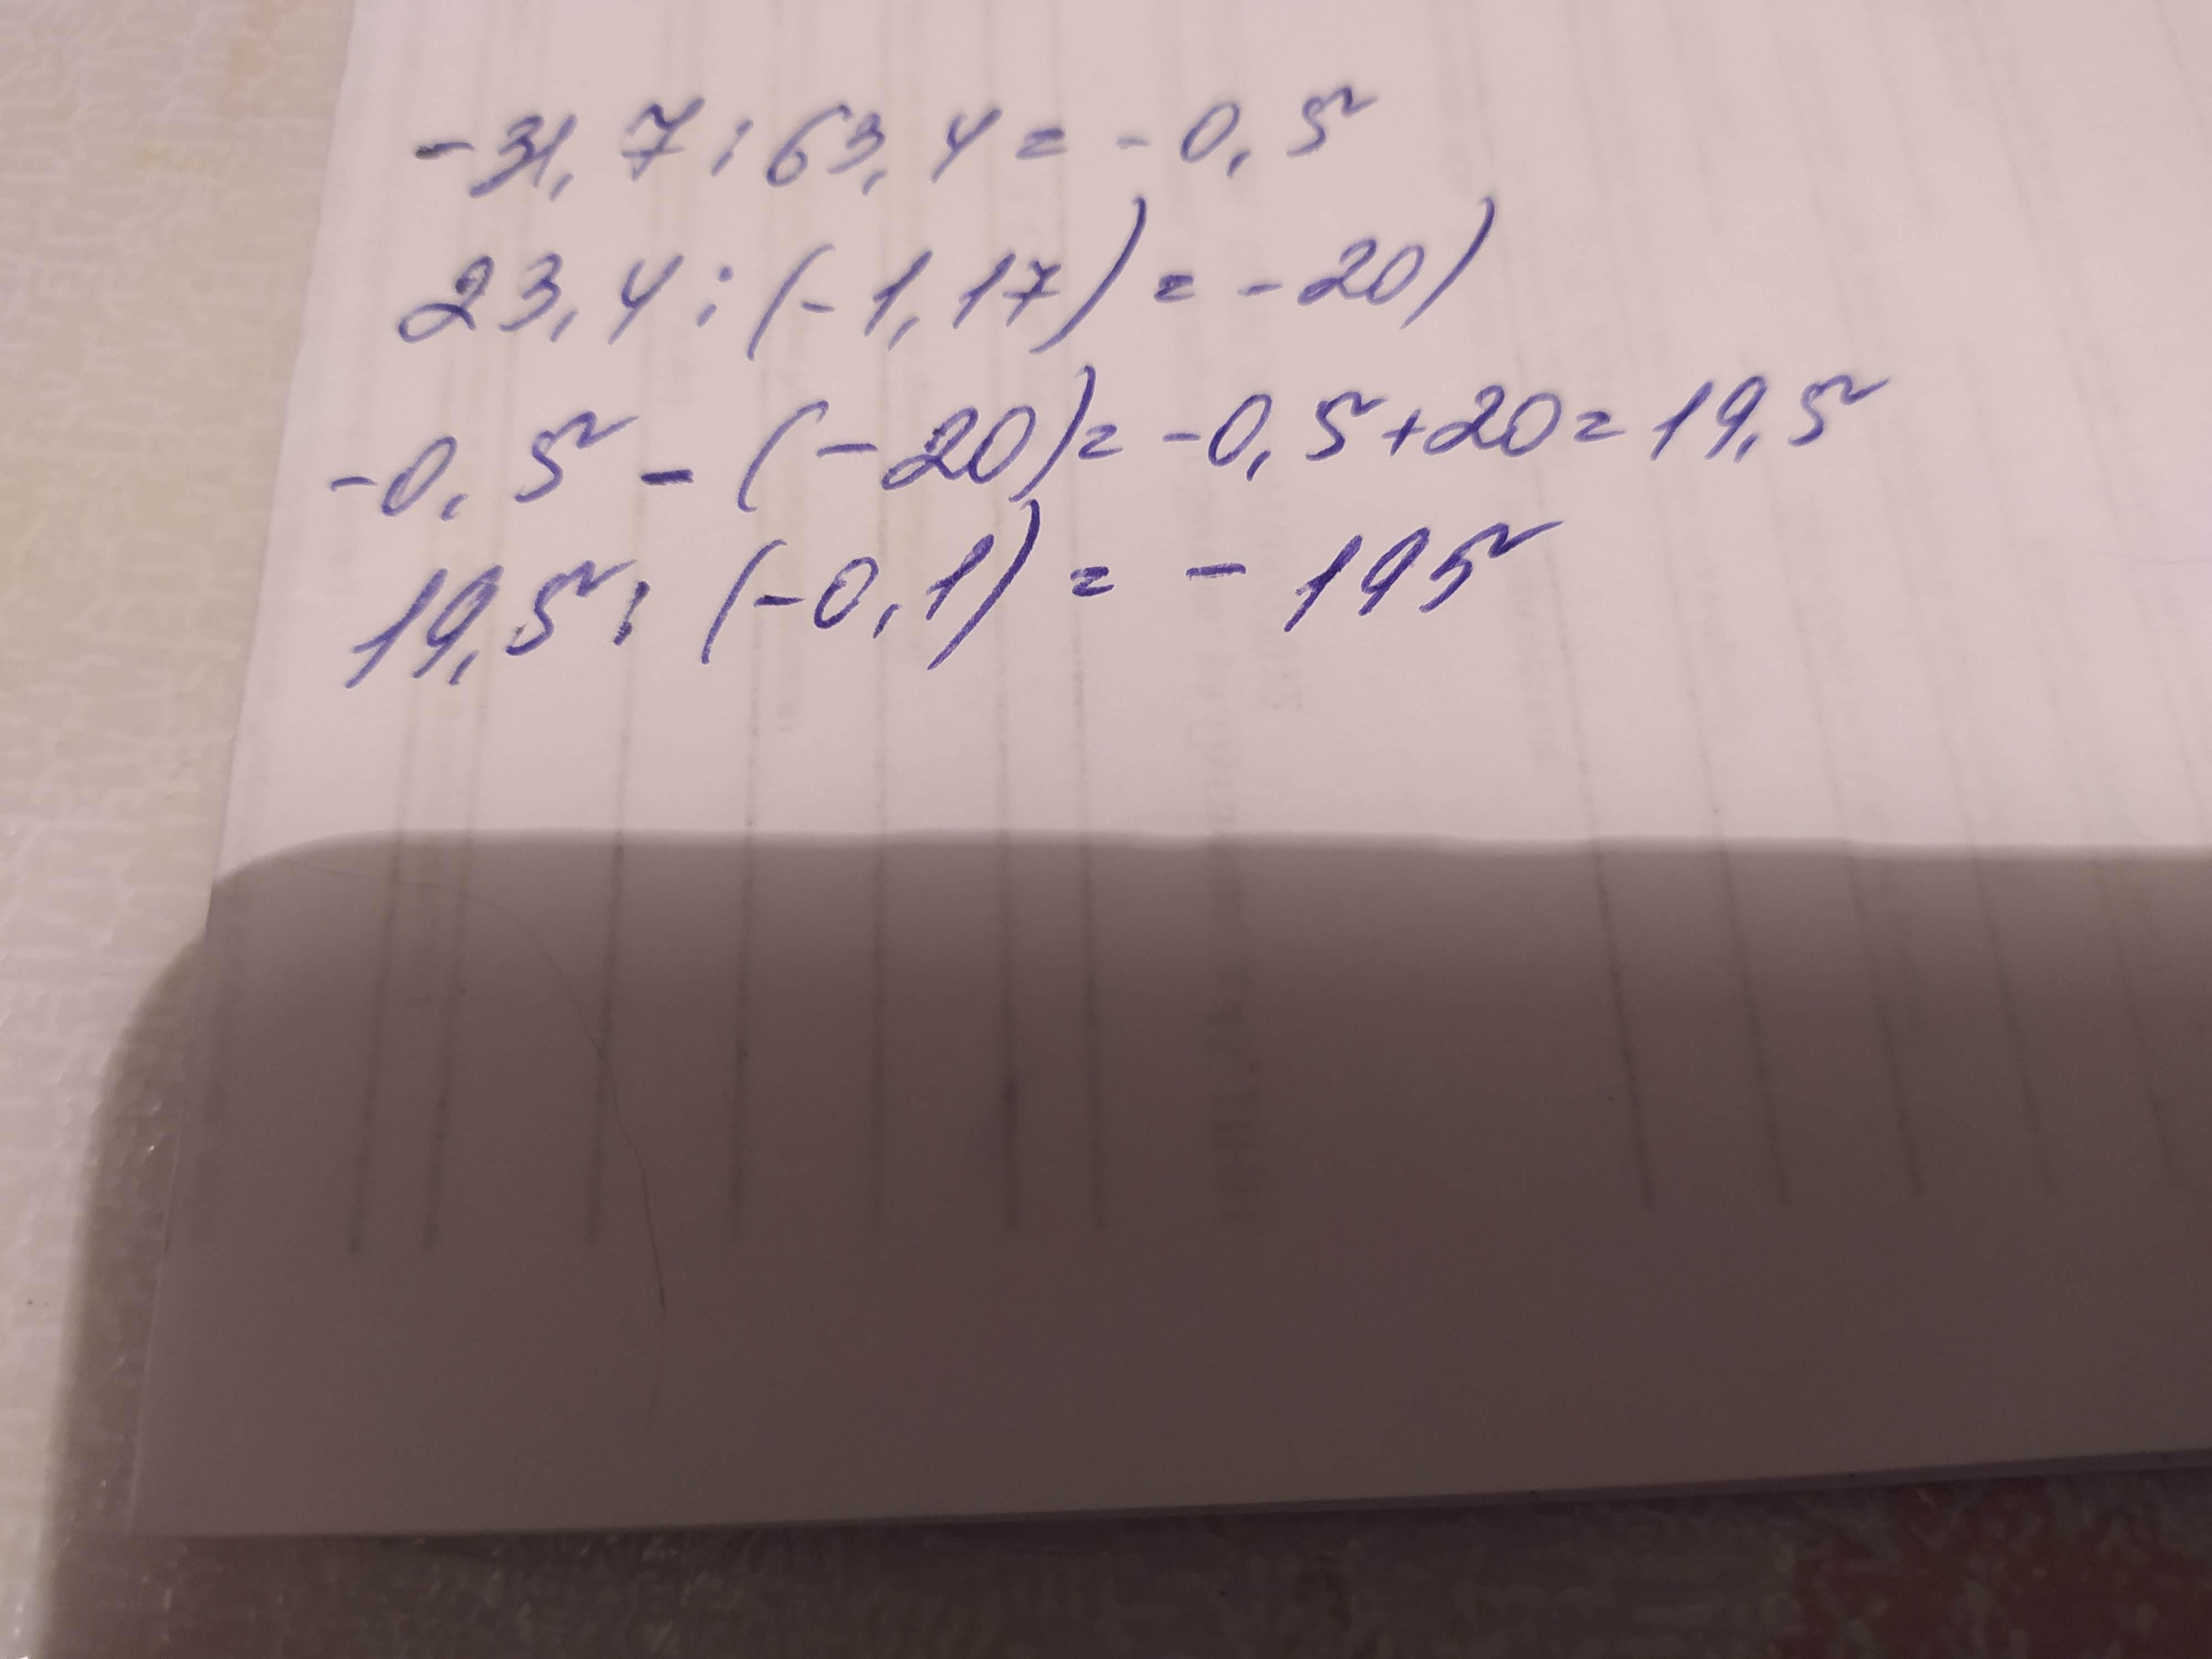 -31,7:63,4=-0,5
23,4:(-1,17)=-20)
-0,5-(-20)=-0,5+20=19,5
19,5:(-0,1)=-195